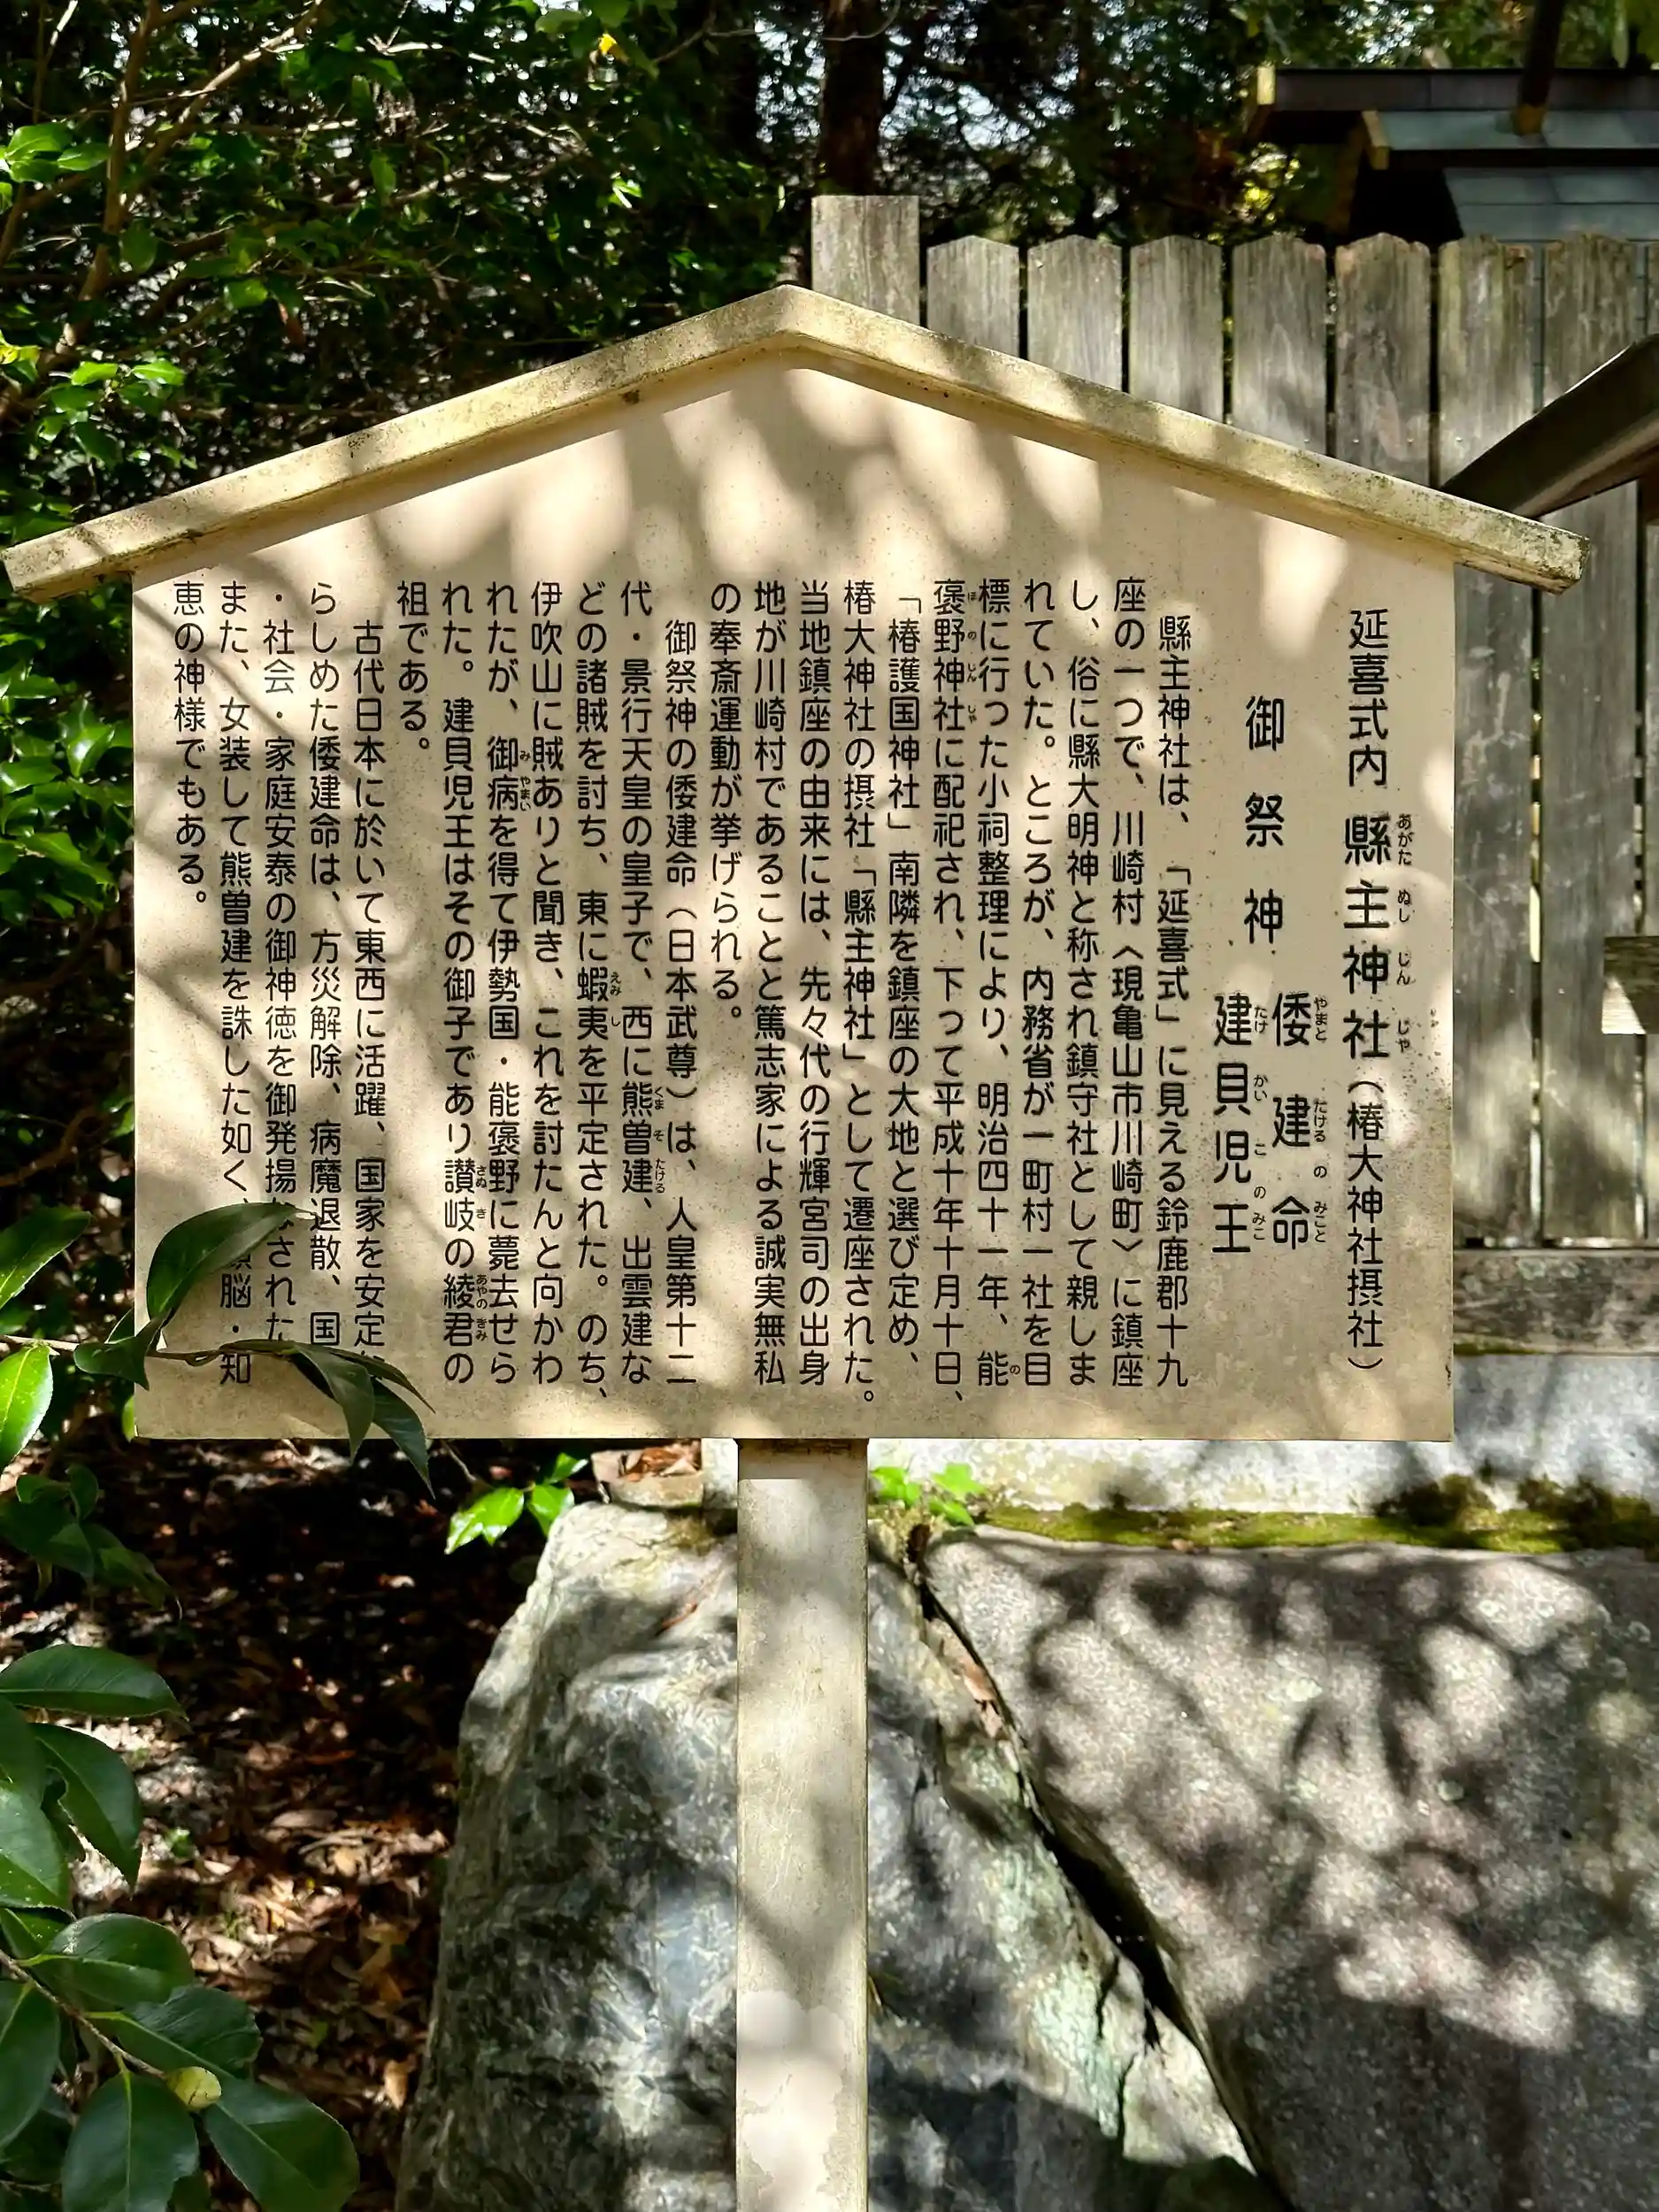 延喜式内 縣主神社（椿大神社摂社）
御祭神 倭建命
建貝児王
縣主神社は、「延喜式」に見える鈴鹿郡十九
座の一つで、川崎村〈現亀山市川崎町〉に鎮座
し、俗に縣大明神と称され鎮守社として親しま
れていた。ところが、内務省が一町村一社を目
標に行った小祠整理により、明治四十一年、能
褒野神社に配祀され、下って平成十年十月十日、
「椿護国神社」南隣を鎮座の大地と選び定め、
椿大神社の摂社「縣主神社」として遷座された。
当地鎮座の由来には、先々代の行輝宮司の出身
地が川崎村であることと篤志家による誠実無私
の奉斎運動が挙げられる。
御祭神の倭建命（日本武尊）は、人皇第十二
代・景行天皇の皇子で、西に熊曽建、出雲建な
どの諸賊を討ち、東に蝦夷を平定された。のち、
伊吹山に賊ありと聞き、これを討たんと向かわ
れたが、御病を得て伊勢国・能褒野に薨去せら
れた。建貝児王はその御子であり讃岐の綾君の
祖である。
古代日本に於いて東西に活躍、国家を安定
らしめた倭建命は、方災解除、病魔退散、国
・社会・家庭安泰の御神徳を御発揚 された
また、女装して熊曽建を誅した如く、 脳・知
恵の神様でもある。